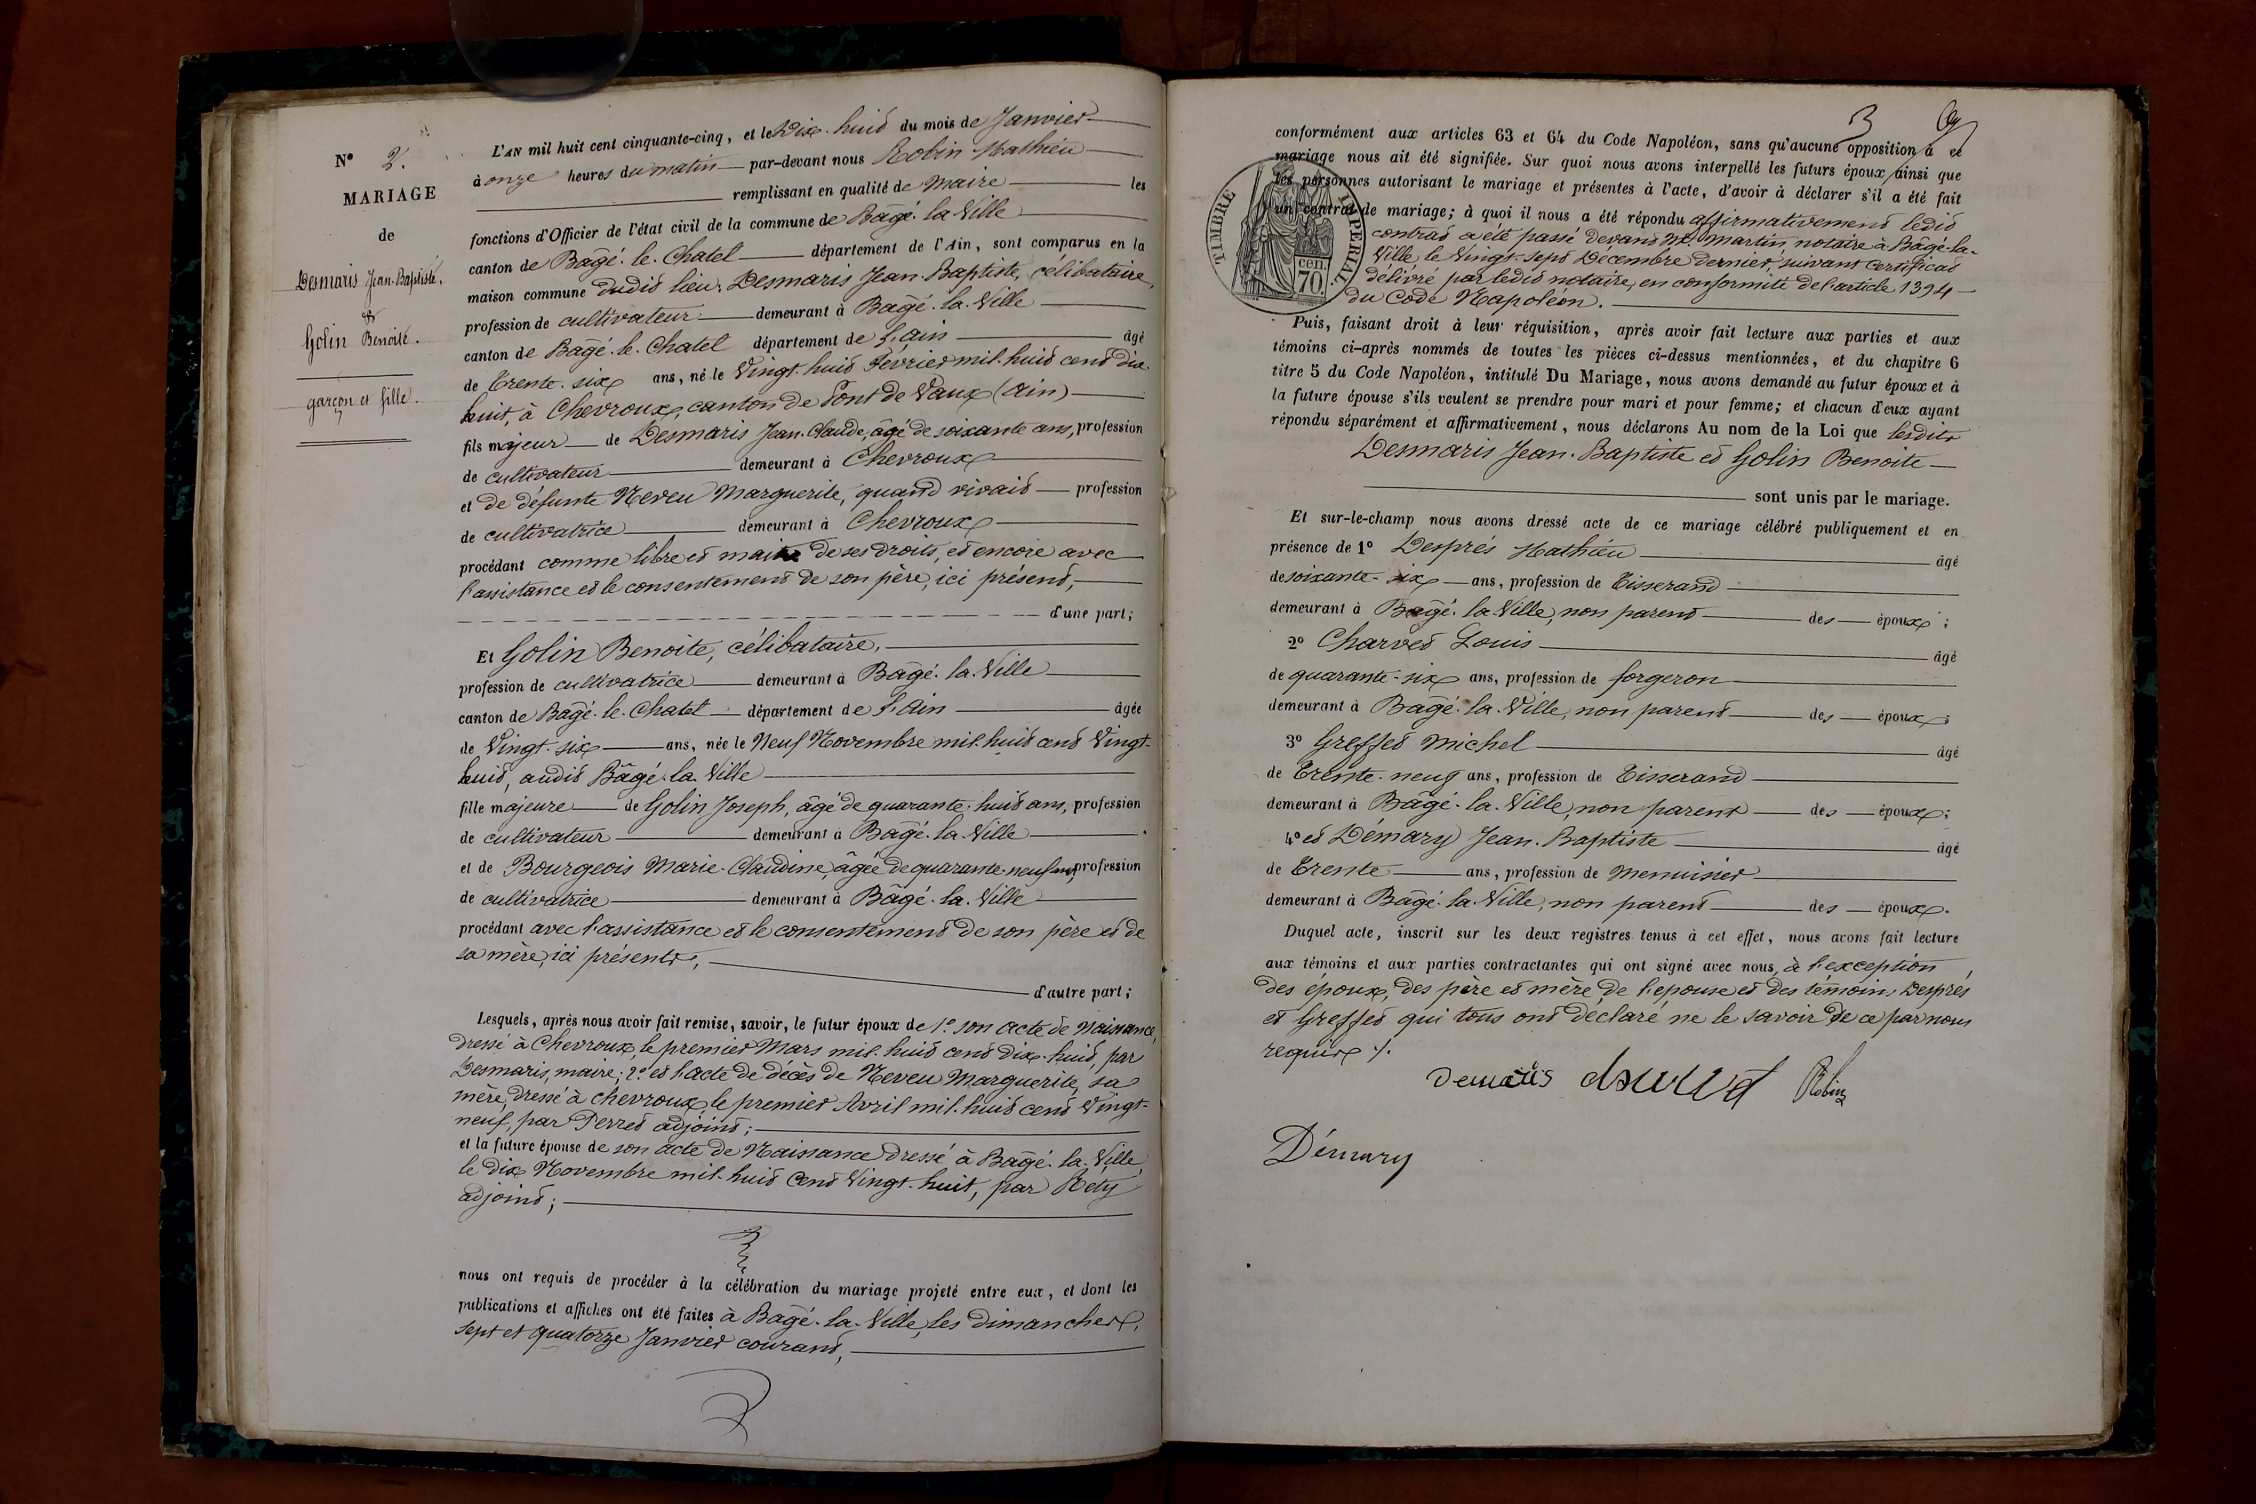 N° 2.
MARIAGE
de
Desmaris Jean-Baptiste,
&
Golin Benoite.
garçon et fille.
L'AN mil huit cent cinquante-cinq, et le Dix-huit du mois de Janvier
à onze heures du matin par-devant nous Robin Mathieu
remplissant en qualité de Maire les
fonctions d'Officier de l'état civil de la commune de Bâgé-la-Ville
canton de Bâgé-le-Chatel département de l'Ain, sont comparus en la
maison commune dudit lieu, Desmaris Jean-Baptiste, célibataire,
profession de cultivateur demeurant à Bâgé-la-Ville
canton de Bâgé-le-Chatel département de l'Ain âgé
de Trente-six ans, né le Vingt-huit Février mil-huit cent dix-
huit, à Chevroux, canton de Pont de Vaux (Ain)
fils majeur de Desmaris Jean-Claude, âgé de soixante ans, profession
de cultivateur demeurant à Chevroux
et de défunte Neveu Marguerite, quand vivait profession
de cultivatrice demeurant à Chevroux
procédant comme libre et maitre de ses droits, et encore avec
l'assistance et le consentement de son père, ici présent,
d'une part;
Et Golin Benoite, célibataire,
profession de cultivatrice demeurant à Bâgé-la-Ville
canton de Bâgé-le-Chatel département de l'Ain âgée
de Vingt-six ans, née le Neuf Novembre mil-huit cent Vingt-
huit, audit Bâgé-la-Ville
fille majeure de Golin Joseph, âgé de quarante-huit ans, profession
de cultivateur demeurant à Bâgé-la-Ville
et de Bourgeois Marie-Claudine, âgée de quarante-neuf ans, profession
de cultivatrice demeurant à Bâgé-la-Ville
procédant avec l'assistance et le consentement de son père et de
sa mère, ici présents,
d'autre part;
Lesquels, après nous avoir fait remise, savoir, le futur époux de 1° son acte de Naissance,
dressé à Chevroux, le premier Mars mil-huit cent dix-huit, par
Desmaris, maire; 2° et l'acte de décès de Neveu Marguerite, sa
mère, dressé à Chevroux, le premier Avril mil-huit cent Vingt-
neuf, par Perret adjoint;
et la future épouse de son acte de Naissance dressé à Bâgé-la-Ville,
le dix Novembre mil-huit Cent Vingt-huit, par Réty
adjoint;
nous ont requis de procéder à la célébration du mariage projeté entre eux, et dont les
publications et affiches ont été faites à Bâgé-la-Ville, les dimanches,
sept et quatorze Janvier courant,
3
conformément aux articles 63 et 64 du Code Napoléon, sans qu'aucune opposition à ce
mariage nous ait été signifiée. Sur quoi nous avons interpellé les futurs époux ainsi que
les personnes autorisant le mariage et présentes à l'acte, d'avoir à déclarer s'il a été fait
un contrat de mariage; à quoi il nous a été répondu affirmativement ledit
contrat a été passé devant Me. Martin, notaire à Bâgé-la-
Ville, le Vingt-sept Décembre dernier, suivant certificat
délivré par ledit notaire, en conformité de l'article 1394
du Code Napoléon.
TIMBRE IMPERIAL
70 cen.
Puis, faisant droit à leur réquisition, après avoir fait lecture aux parties et aux
témoins ci-après nommés de toutes les pièces ci-dessus mentionnées, et du chapitre 6
titre 5 du Code Napoléon, intitulé Du Mariage, nous avons demandé au futur époux et à
la future épouse s'ils veulent se prendre pour mari et pour femme; et chacun d'eux ayant
répondu séparément et affirmativement, nous déclarons Au nom de la Loi que lesdits
Desmaris Jean-Baptiste et Golin Benoite
sont unis par le mariage.
Et sur-le-champ nous avons dressé acte de ce mariage célébré publiquement et en
présence de 1° Desprès Mathieu âgé
de soixante-six ans, profession de Tisserand
demeurant à Bâgé-la-Ville, non parent des époux;
2° Charvet Louis âgé
de quarante-six ans, profession de forgeron
demeurant à Bâgé-la-Ville, non parent des époux;
3° Greffet Michel âgé
de Trente-neuf ans, profession de Tisserand
demeurant à Bâgé-la-Ville, non parent des époux;
4° et Démary Jean-Baptiste âgé
de Trente ans, profession de Menuisier
demeurant à Bâgé-la-Ville, non parent des époux.
Duquel acte, inscrit sur les deux registres tenus à cet effet, nous avons fait lecture
aux témoins et aux parties contractantes qui ont signé avec nous, à l'exception
des époux, des père et mère de l'épouse et des témoins Desprès
et Greffet qui tous ont déclaré ne le savoir de ce par nous
requis ./.
Demaris Charvet Robin
Démary